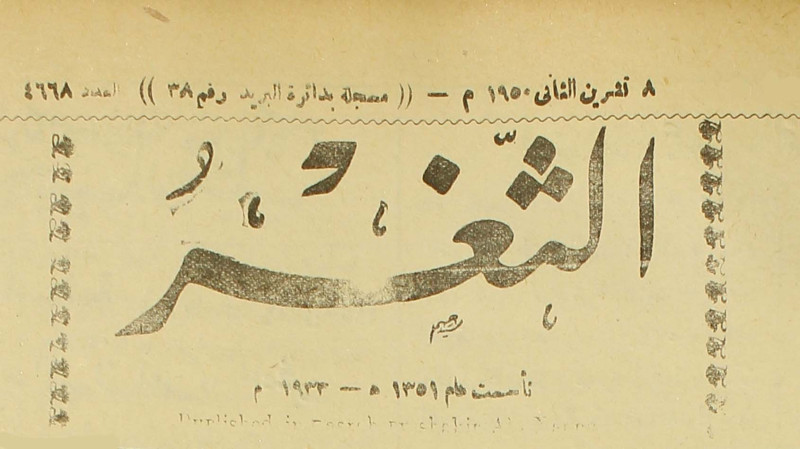 ٨ تشرين الثاني ١٩٥٠ م — (( مسجلة بدائرة البريد رقم ٣٨ )) العدد ٤٦٦٨
الثّغرُ
تأسست عام ١٣٥١ ه — ١٩٣٣ م
Published in